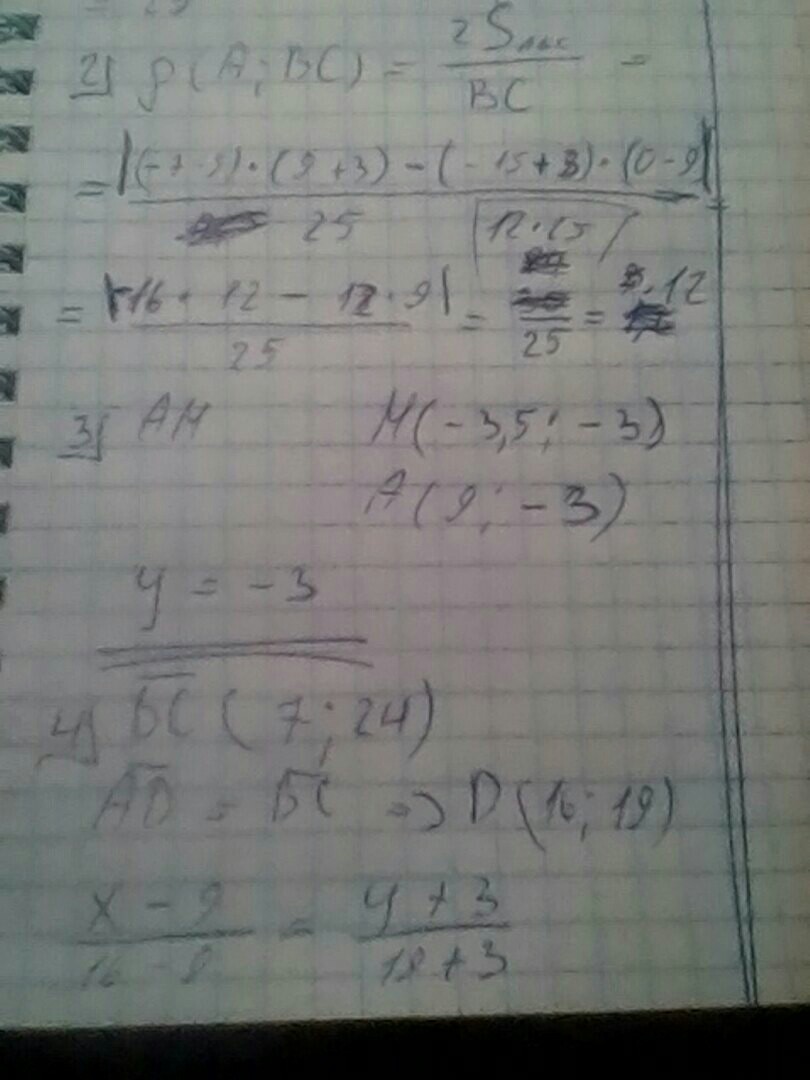 2) ρ(A; BC) = 2S / BC =
= |(-7-9)·(9+3) - (-15+3)·(0-9)| / 25 =
12·25
= |-16·12 - 12·9| / 25 = / 25 = 12
3) AM M(-3,5; -3)
A(9; -3)
y = -3
4) BC (7; 24)
AD = BC => D(16; 19)
x - 9 / 16 - 9 = y + 3 / 19 + 3